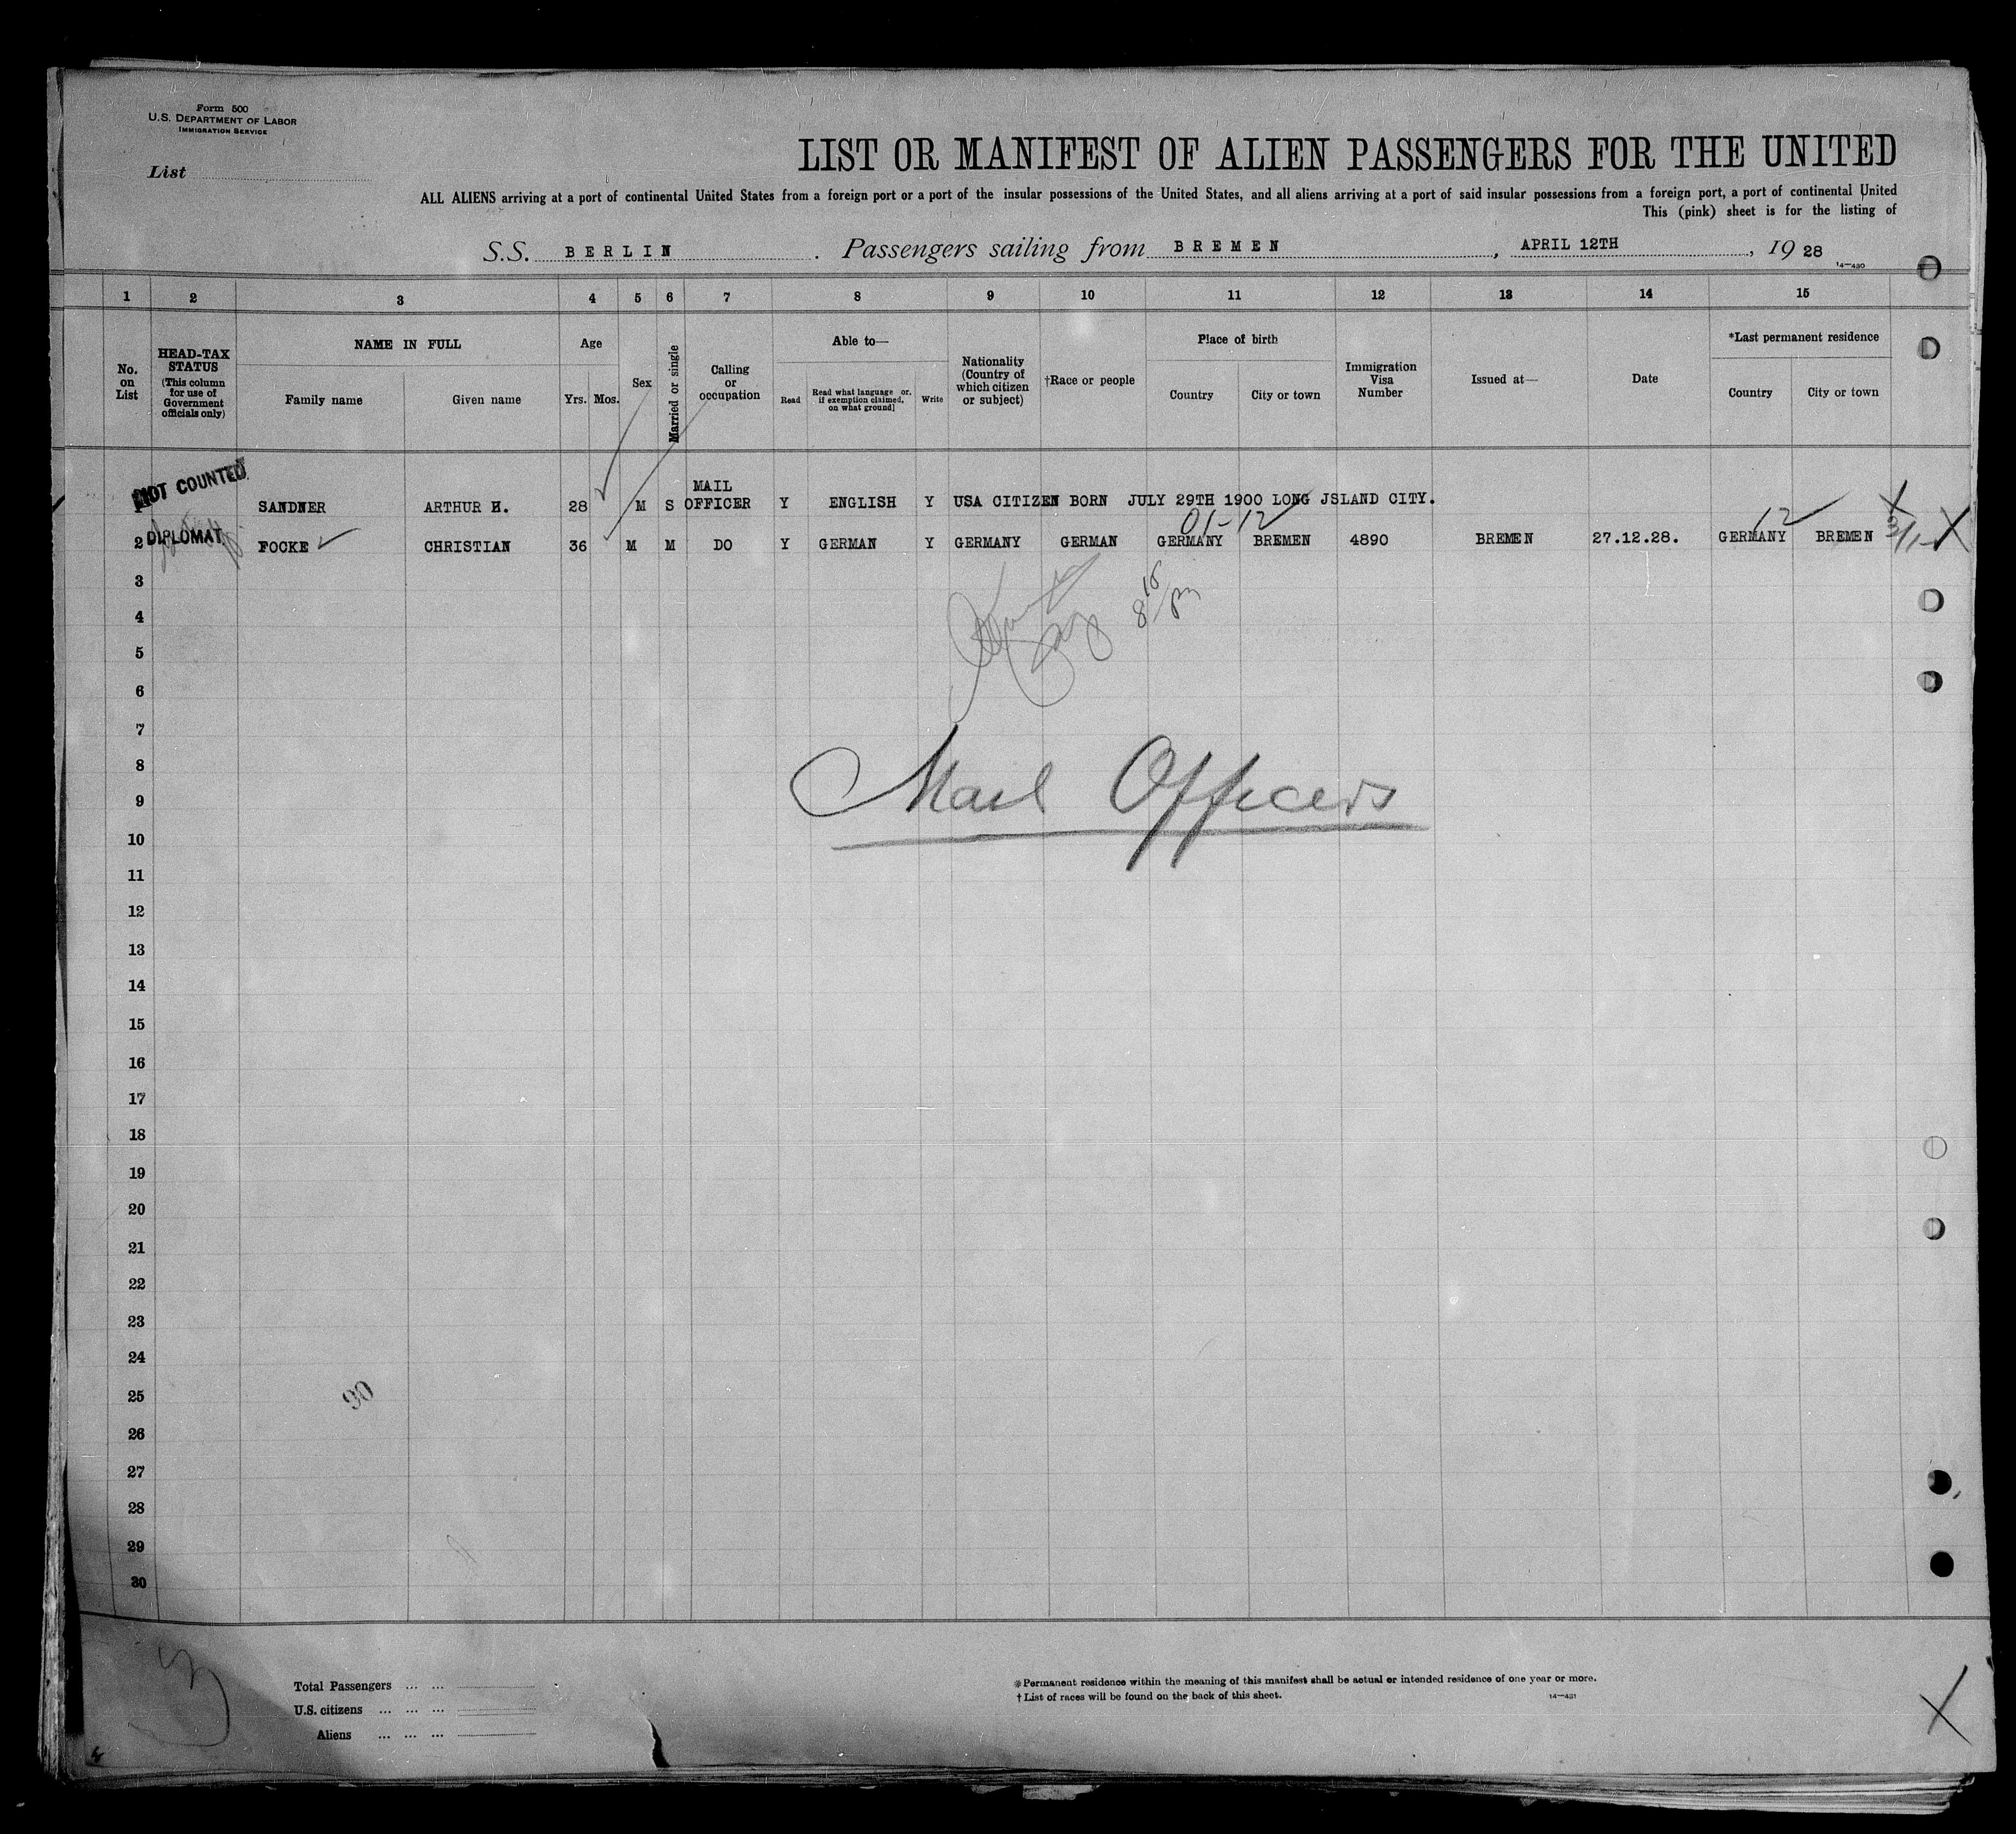 Form 500
U.S. DEPARTMENT OF LABOR
IMMIGRATION SERVICE
List
LIST OR MANIFEST OF ALIEN PASSENGERS FOR THE UNITED
ALL ALIENS arriving at a port of continental United States from a foreign port or a port of the insular possessions of the United States, and all aliens arriving at a port of said insular possessions from a foreign port, a port of continental United
This (pink) sheet is for the listing of
S.S. BERLIN. Passengers sailing from BREMEN, APRIL 12TH, 1928
14—430
1 2 3 4 5 6 7 8 9 10 11 12 13 14 15
No. on List
HEAD-TAX STATUS (This column for use of Government officials only)
NAME IN FULL
Family name Given name
Age
Yrs. Mos.
Sex
Married or single
Calling or occupation
Able to—
Read Read what language or, if exemption claimed, on what ground] Write
Nationality (Country of which citizen or subject)
†Race or people
Place of birth
Country City or town
Immigration Visa Number
Issued at—
Date
*Last permanent residence
Country City or town
NOT COUNTED
1 SANDNER ARTHUR H. 28 M S MAIL OFFICER Y ENGLISH Y USA CITIZEN BORN JULY 29TH 1900 LONG JSLAND CITY.
01-12 12
DIPLOMAT
2 FOCKE CHRISTIAN 36 M M DO Y GERMAN Y GERMANY GERMAN GERMANY BREMEN 4890 BREMEN 27.12.28. GERMANY BREMEN
3
4
8 15 pm
5
6
7
8
Mail Officers
9
10
11
12
13
14
15
16
17
18
19
20
21
22
23
24
25
90
26
27
28
29
30
3
Total Passengers ... ...
U.S. citizens ... ... ...
Aliens ... ... ...
*Permanent residence within the meaning of this manifest shall be actual or intended residence of one year or more.
†List of races will be found on the back of this sheet.
14—431